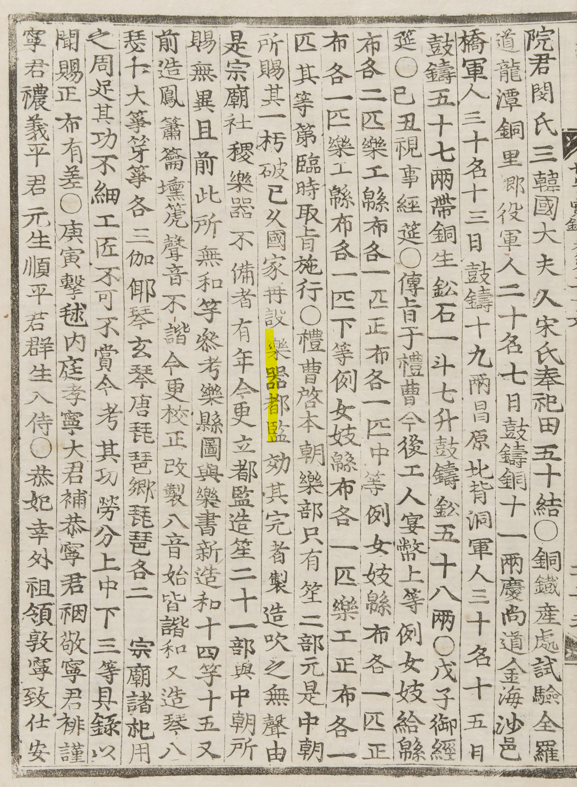 院君閔氏三韓國大夫久宋氏奉祀田五十結○銅鐵產處試驗全羅
道龍潭銅里郎役軍人二十名七日鼓鑄銅十一兩慶尚道金海沙邑
橋軍人三十名十三日鼓鑄十九兩昌原北背洞軍人三十名十五日
鼓鑄五十七兩帶銅生鈆石一斗七升鼓鑄鈆五十八兩○戊子御經
筵○己丑視事經筵○傳旨于禮曹今後工人宴幣上等例女妓給緜
布各二匹樂工緜布各一匹正布各一匹中等例女妓緜布各一匹正
布各一匹樂工緜布各一匹下等例女妓緜布各一匹樂工正布各一
匹其等第臨時取旨施行○禮曹啓本朝樂部只有笙二部元是中朝
所賜其一朽破已久國家再設樂器都監効其完者製造吹之無聲由
是宗廟社稷樂器不備者有年今更立都監造笙二十一部與中朝所
賜無異且前此所無和竽參考樂縣圖與樂書新造和十四竽十五又
前造鳳簫籥壎箎聲音不諧今更校正改製八音始皆諧和又造琴八
瑟十大箏牙箏各三伽倻琴玄琴唐琵琶鄉琵琶各二 宗廟諸祀用
之周足其功不細工匠不可不賞今考其功勞分上中下三等具錄以
聞賜正布有差○庚寅擊毬內庭孝寧大君補恭寧君裀敬寧君裶謹
寧君襛義平君元生順平君群生入侍○恭妃幸外祖領敦寧致仕安